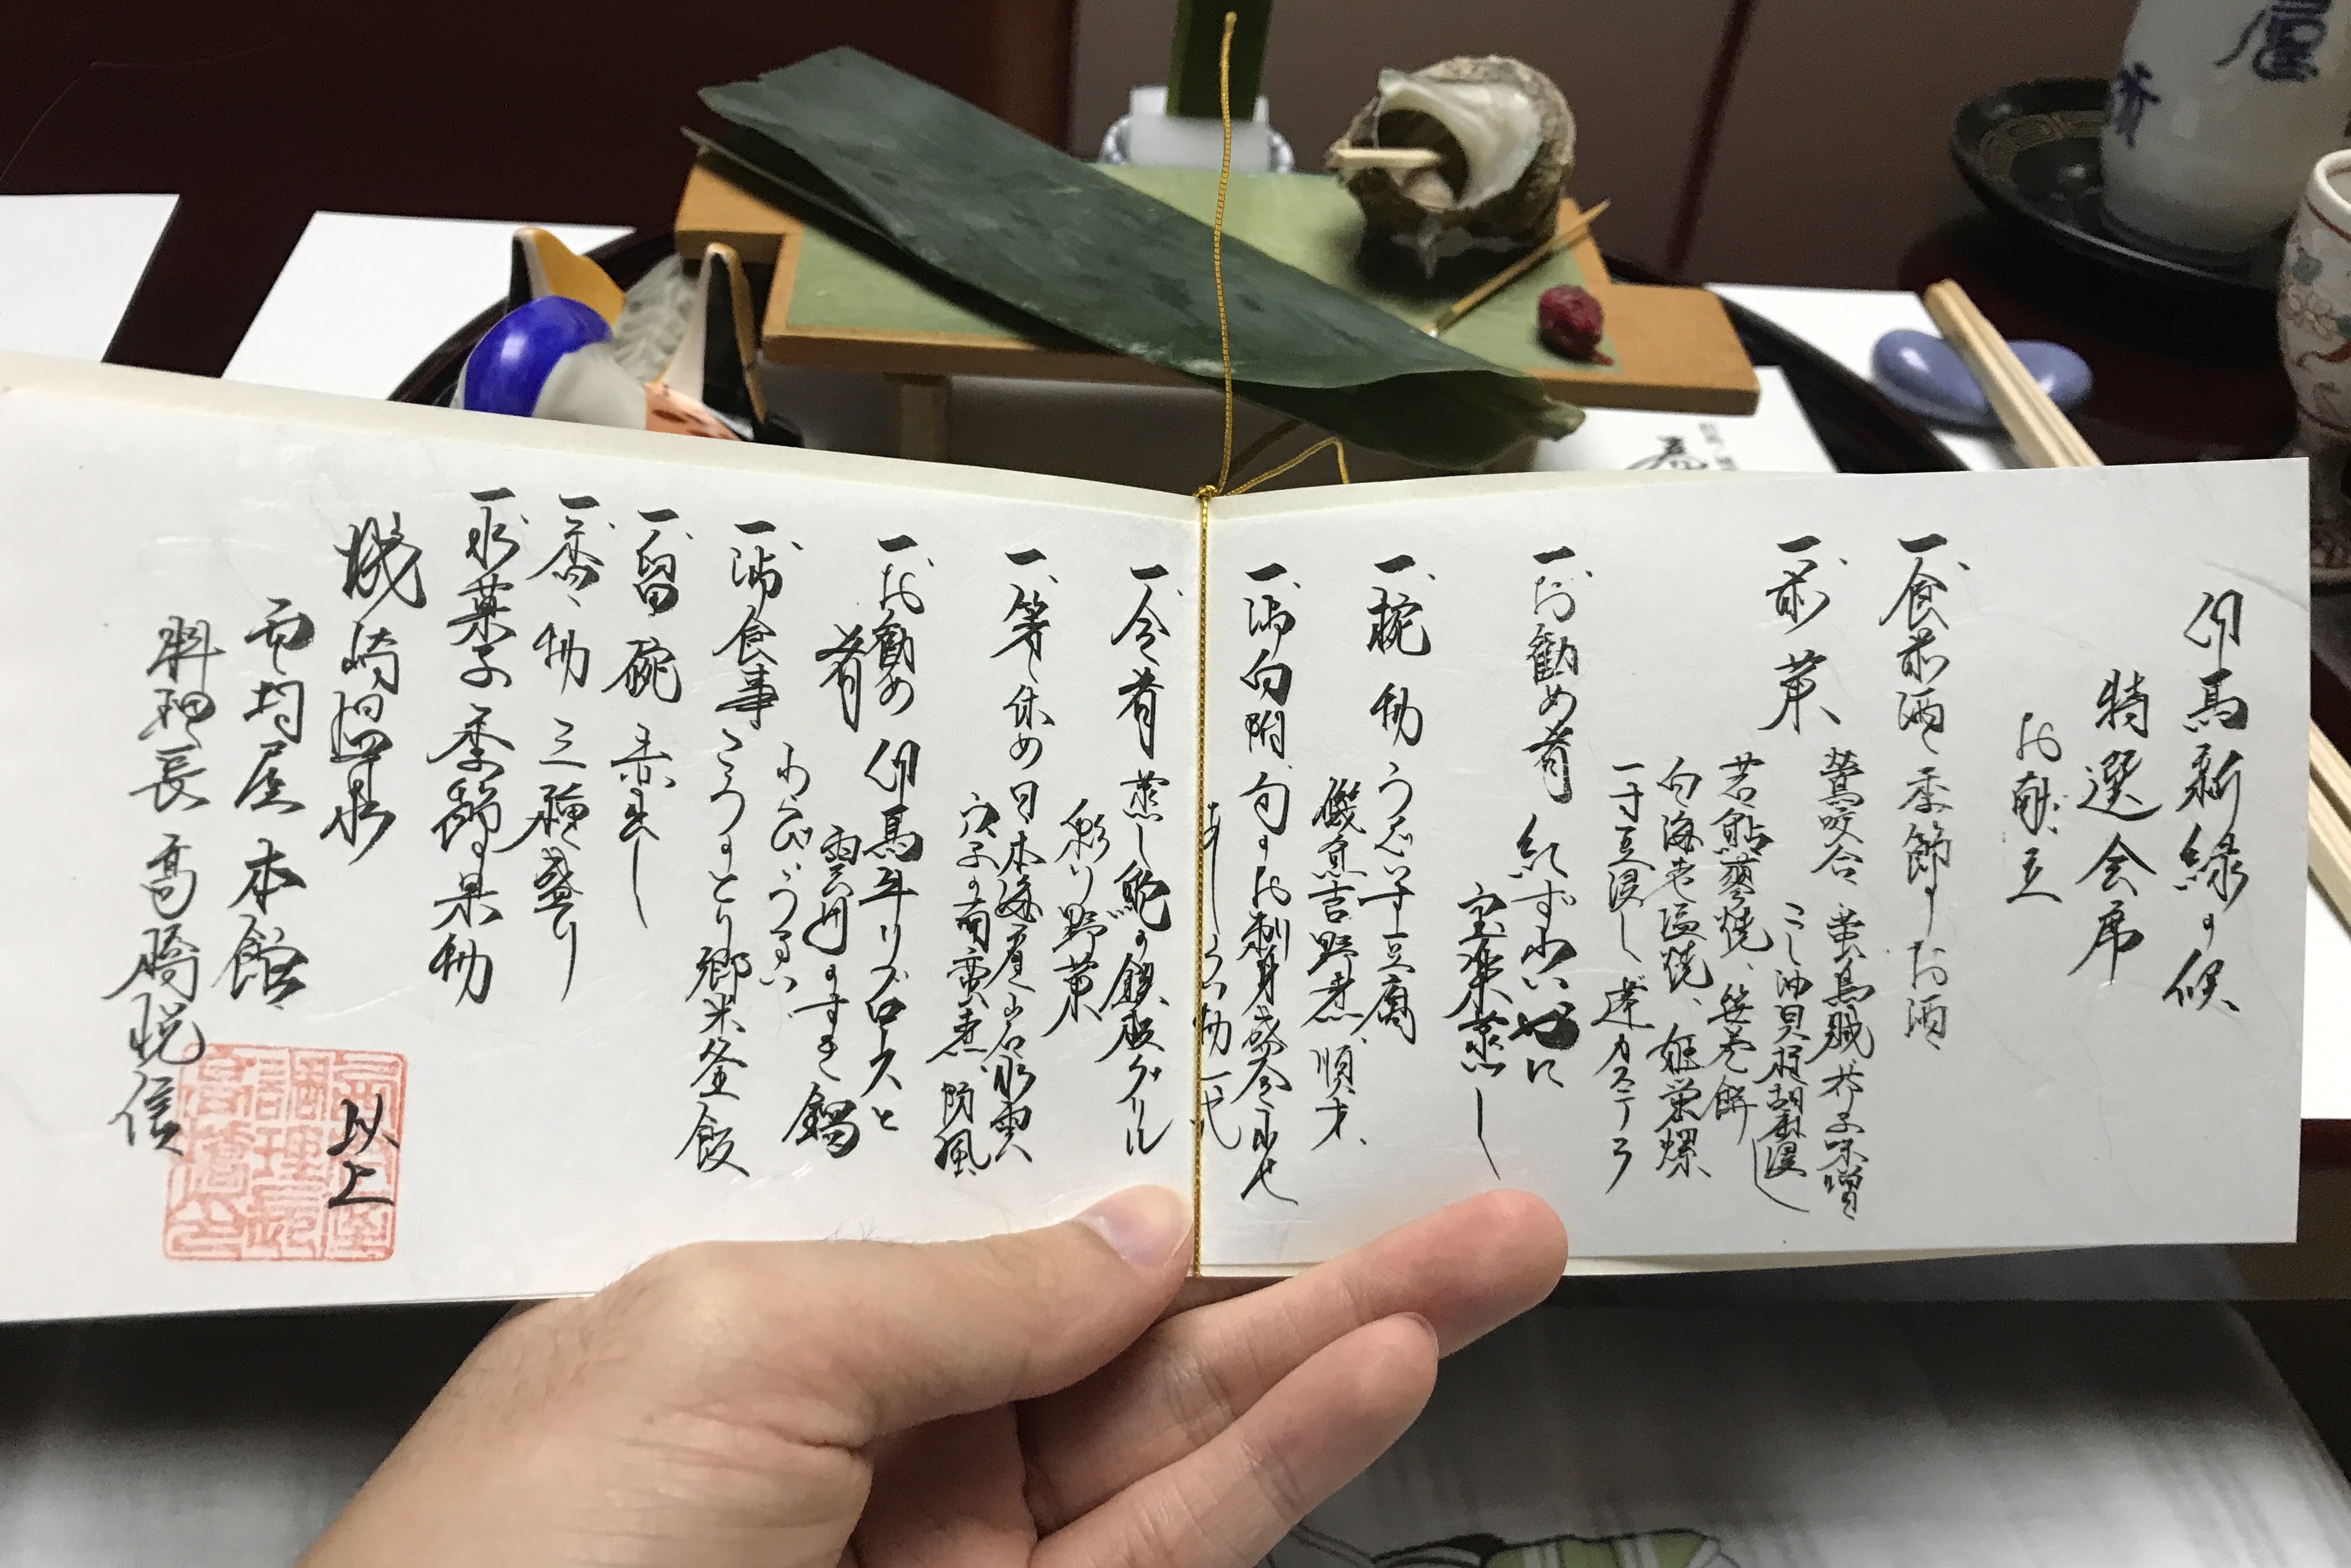 但馬新緑の候
特選会席
お献立
一、食前酒 季節のお酒
一、前菜
若鮎蓼焼、笹巻餅
白海老塩焼、姫栄螺
一寸豆浸し 蓮カステラ
一、お勧め肴 紅ずわいがに
宝楽蒸し
一、椀物 うぐいす豆腐
磯魚吉野煮、順才、
一、御向附 旬のお刺身盛合わせ
あしらい物一式
一、合肴 蒸し鮑の鉄板グリル
彩り野菜
一、箸休め 日本海産岩水雲
穴子の南蛮煮、防風
一、お勧め肴 但馬牛リブロースと
雲丹のすき鍋
一、御食事 こうのとり郷米釜飯
一、留椀 赤出し
一、香の物 三種盛り
一、水菓子 季節の果物
城崎温泉
西村屋 本館
料理長 高橋悦信
以上